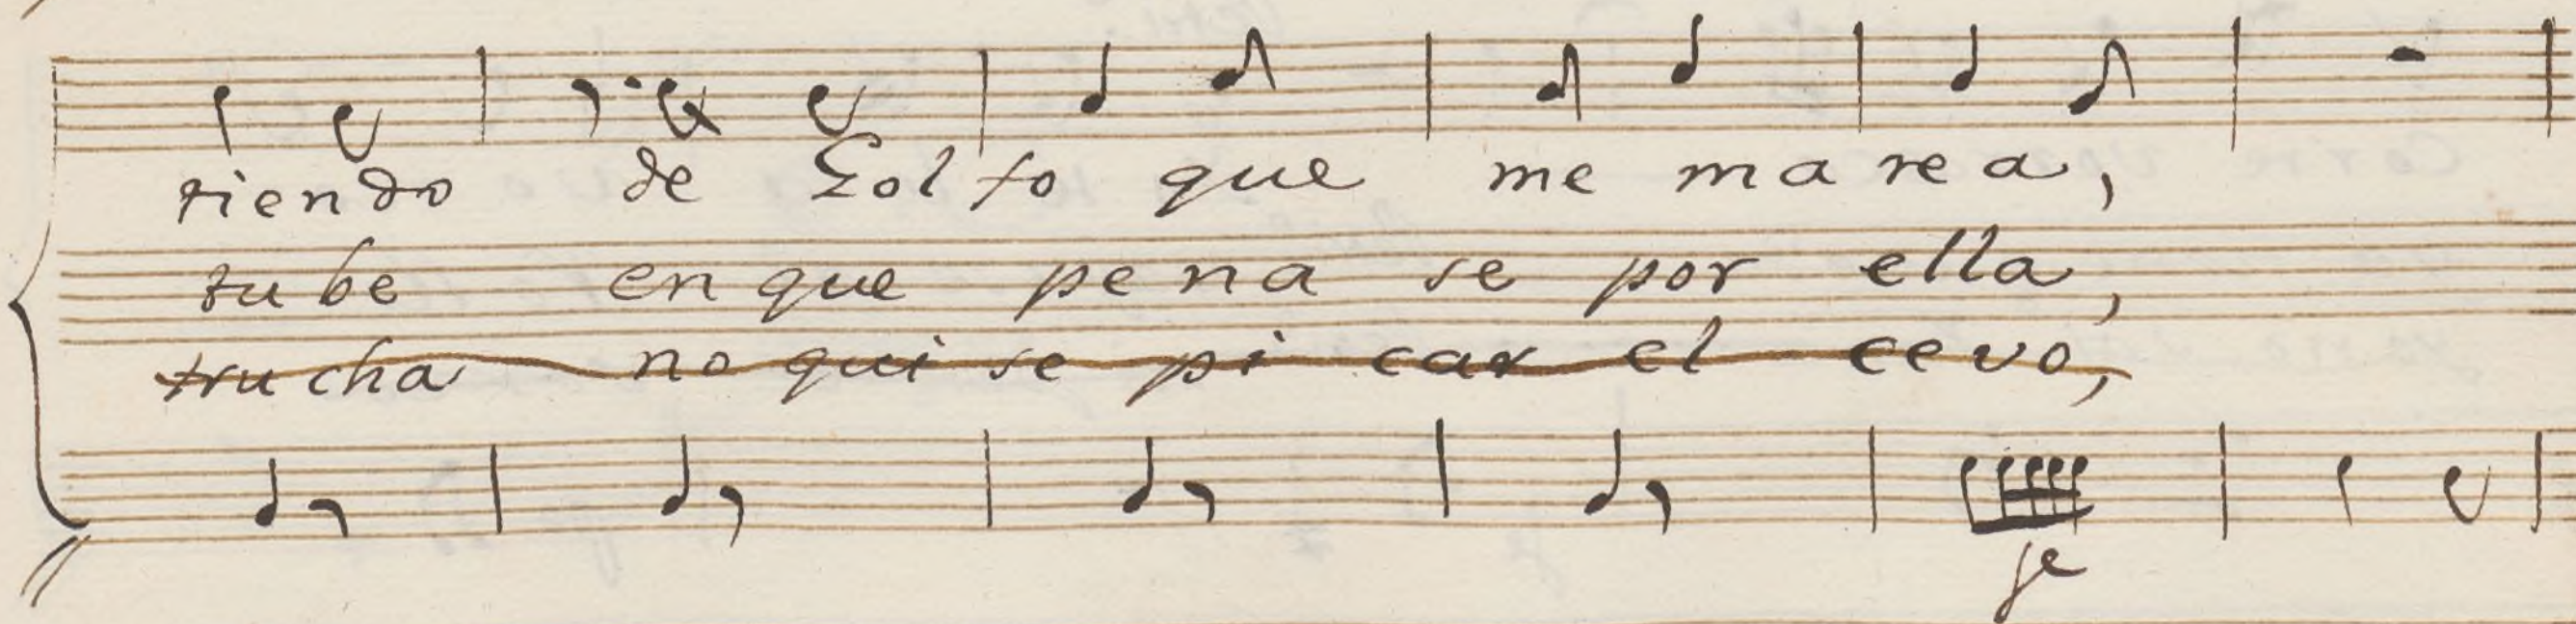 riendo de Golfo que me ma rea,
tu be en que pe na se por ella,
tru cha no qui se pi car el cevo,
fe